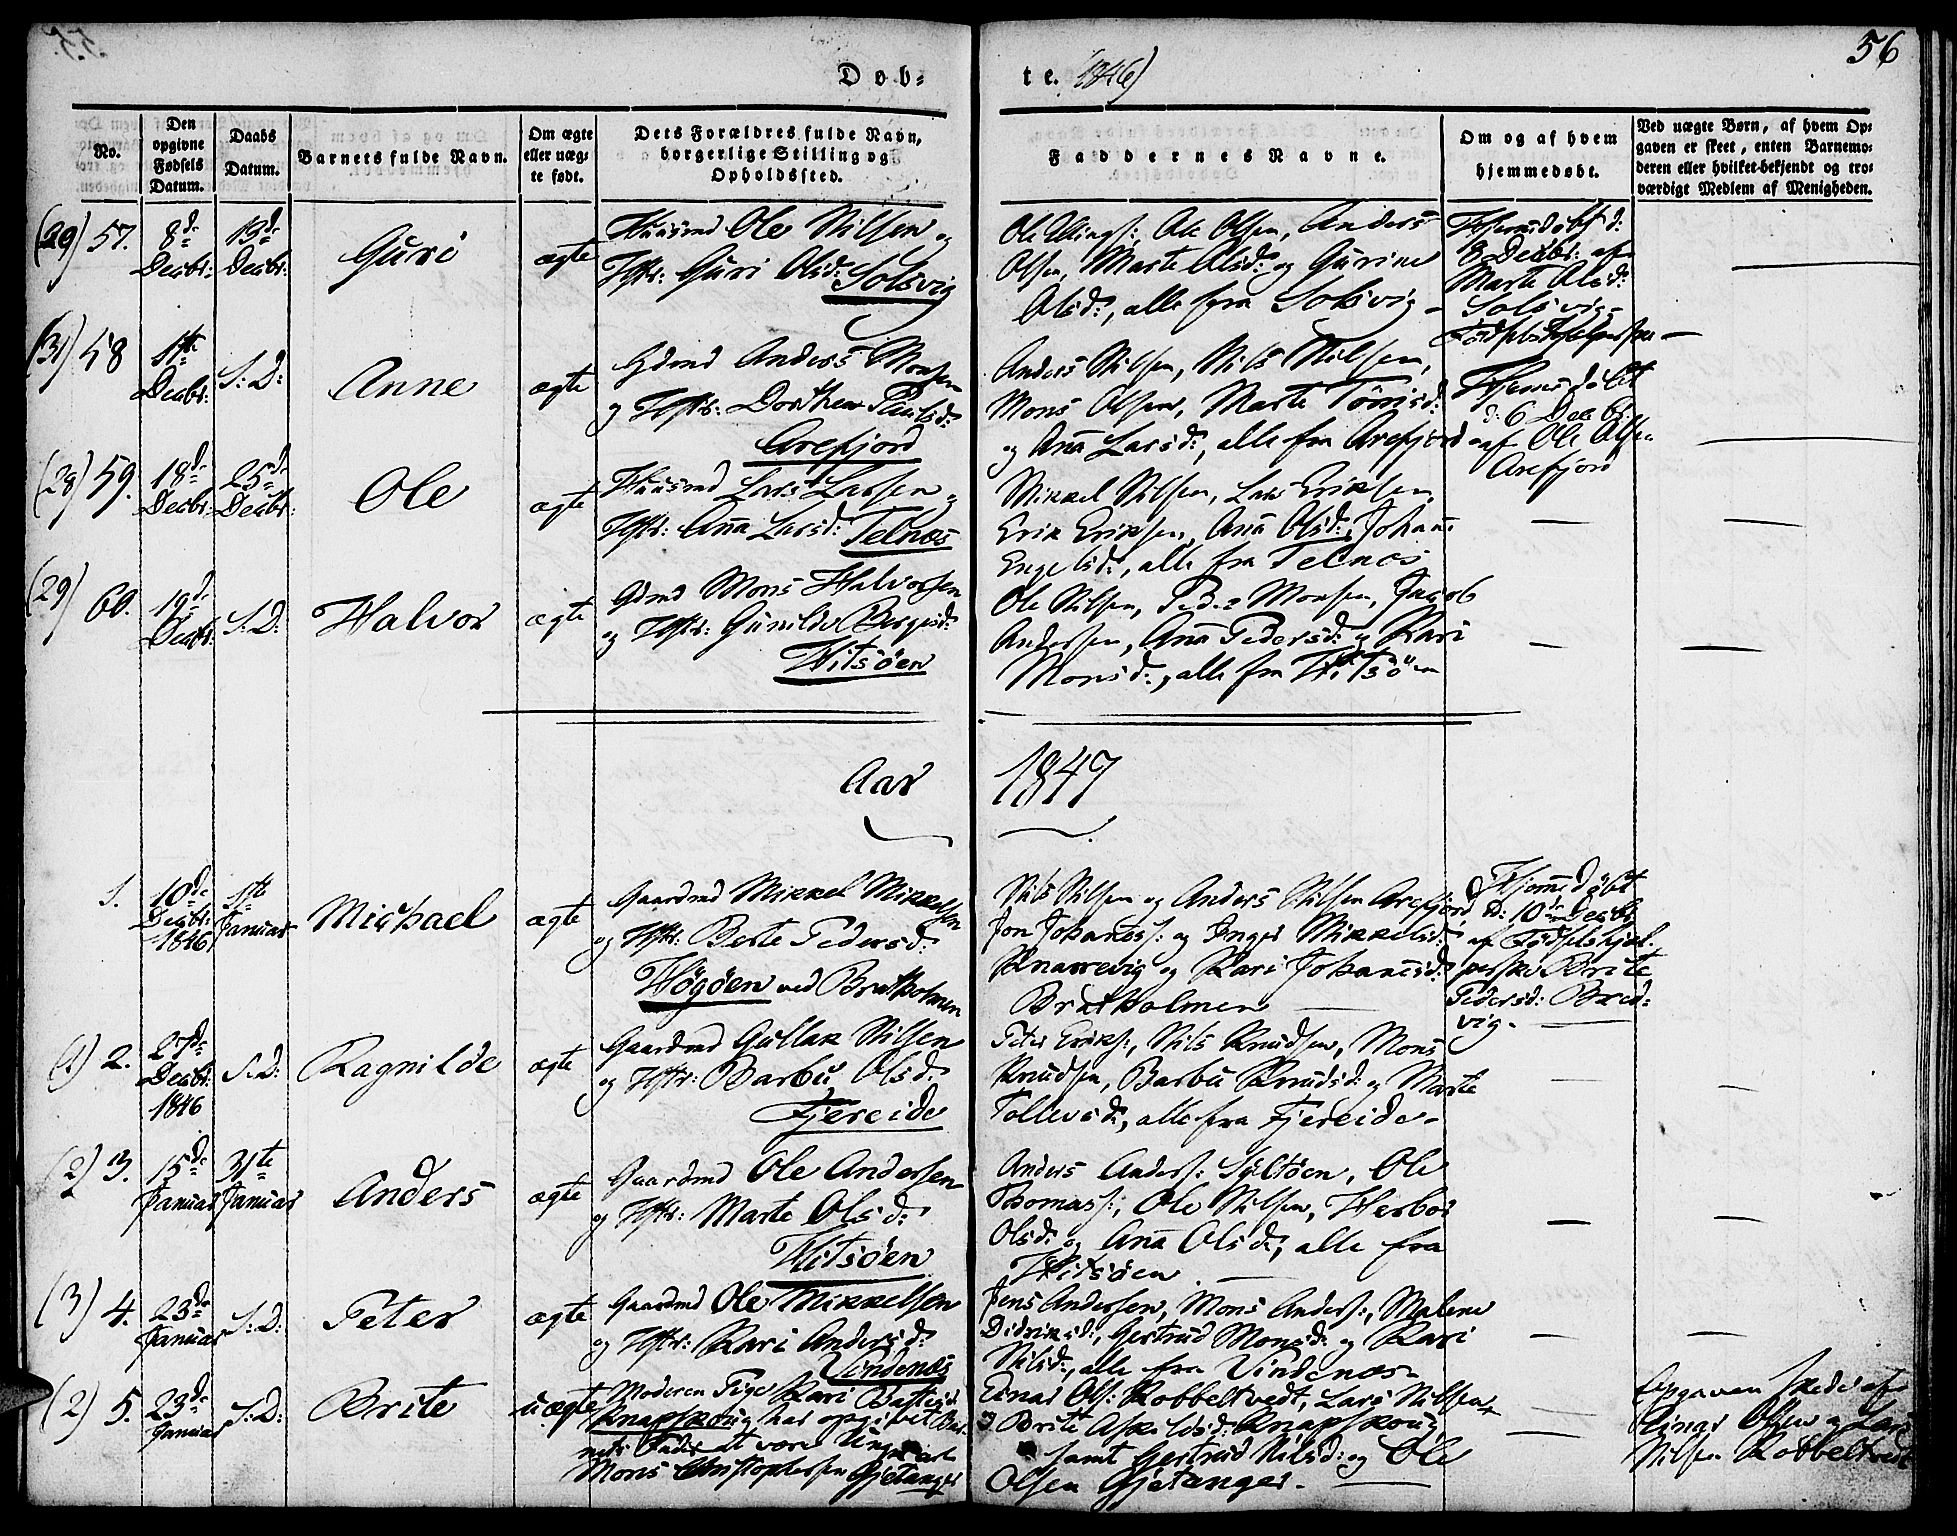 56
Døb-
te. 1846)
No.
Den opgivne Fødsels Datum.
Daabs Datum.
Barnets fulde Navn.
Om ægte eller uægte født.
Dets Forældres fulde Navn, borgerlige Stilling og Opholdssted.
Faddernes Navne.
Om og af hvem hjemmedøbt.
Ved uægte Børn, af hvem Opgaven er skeet, enten Barnemoderen eller hvilket-bekjendt og troværdigt Medlem af Menigheden.
(29) 57.
8de Decbr:
13de Decbr:
Guri
ægte
Huusmd Ole Nilsen og
Hstr: Guri Olsd: Solsvig
Ole Ellings:, Ole Olsen, Anders
Olsen, Marte Olsd: og Gurine
Olsd:, alle fra Solsvig -
Hjemmedøbt d:
8 Decbr: af
Marte Olsd:
Solsvig
(31) 58
1ste Decbr:
S: D:
Anne
ægte
Gdmd Anders Monsen
og Hstr: Dorthea Paulsd:
Arefjord
Anders Nilsen, Nils Nilsen,
Mons Olsen, Marte Tørrisd:
og Anna Larsd:, alle fra Arefjord
Hjemmedøbt
d: 6 Decbr:
af Ole Olsen
Arefjord
(28) 59.
18de Decbr:
25de Decbr:
Ole
ægte
Huusmd Lars Larsen og
Hstr: Anna Larsd: Telnes
Mikkel Nilsen, Lars Eriksen,
Erik Eriksen, Anna Olsd:, Johanne
Engelsd:, alle fra Telnes
(29) 60.
19de Decbr:
S: D:
Halvor
ægte
Gdmd Mons Halvorsen
og Hstr: Gunilde Børgesd:
Hitsøen
Ole Nilsen, Peder Monsen, Jacob
Andersen, Anna Pedersd: og Kari
Monsd:, alle fra Hitsøen
Aar 1847
1.
10de Decbr: 1846
1ste Januar
Michael
ægte
Gaardmd Mikkel Mikkelsen
og Hstr: Berte Pedersd:
Høgøen ved Bratholmen
Nils Nilsen og Anders Nilsen Arefjord
Jon Johaness: og Inger Mikkelsd:
Knarrevig og Kari Johannesd:
Bratholmen
Hjemmedøbt
d: 10de Decbr:
af Fødselshjel-
perske Brite
Pedersd: Bred-
vig.
(1) 2.
27de Decbr: 1846
S: D:
Ragnilde
ægte
Gaardmd Gullak Nilsen
og Hstr: Barbu Olsd:
Fjereide
Peter Eriks:, Nils Knudsen, Mons
Knudsen, Barbu Knudsd: og Marte
Tollevsd:, alle fra Fjereide -
(2) 3.
15de Januar
31te Januar
Anders
ægte
Gaardmd Ole Andersen
og Hstr: Marte Olsd:
Hitsøen
Anders Anders: Syltøen, Ole
Thomass:, Ole Nilsen, Herbor
Olsd: og Anna Olsd:, alle fra
Hitsøen
(3) 4.
23de Januar
S: D:
Peter
ægte
Gaardmd Ole Mikkelsen
og Hstr: Kari Andersd:
Vindenes
Jens Andersen, Mons Anders:, Malene
Didriksd:, Gertrud Monsd: og Kari
Nilsd:, alle fra Vindenes -
(2) 5.
23de Januar
S: D:
Brite
uægte
Moderen Pige Kari
Knapskoug har opgivet Bar-
nets Fader at være Ungkarl
Mons Christophersen Gjetanger
Einar Ols: Kobbeltvedt, Lars Nilsen
Brite Askildsd: Knapskoug
samt Gertrud Nilsd: og Ole
Olsen Gjetanger.
Opgaven skede af
Einar Olsen og Lars
Nilsen Kobbeltvedt